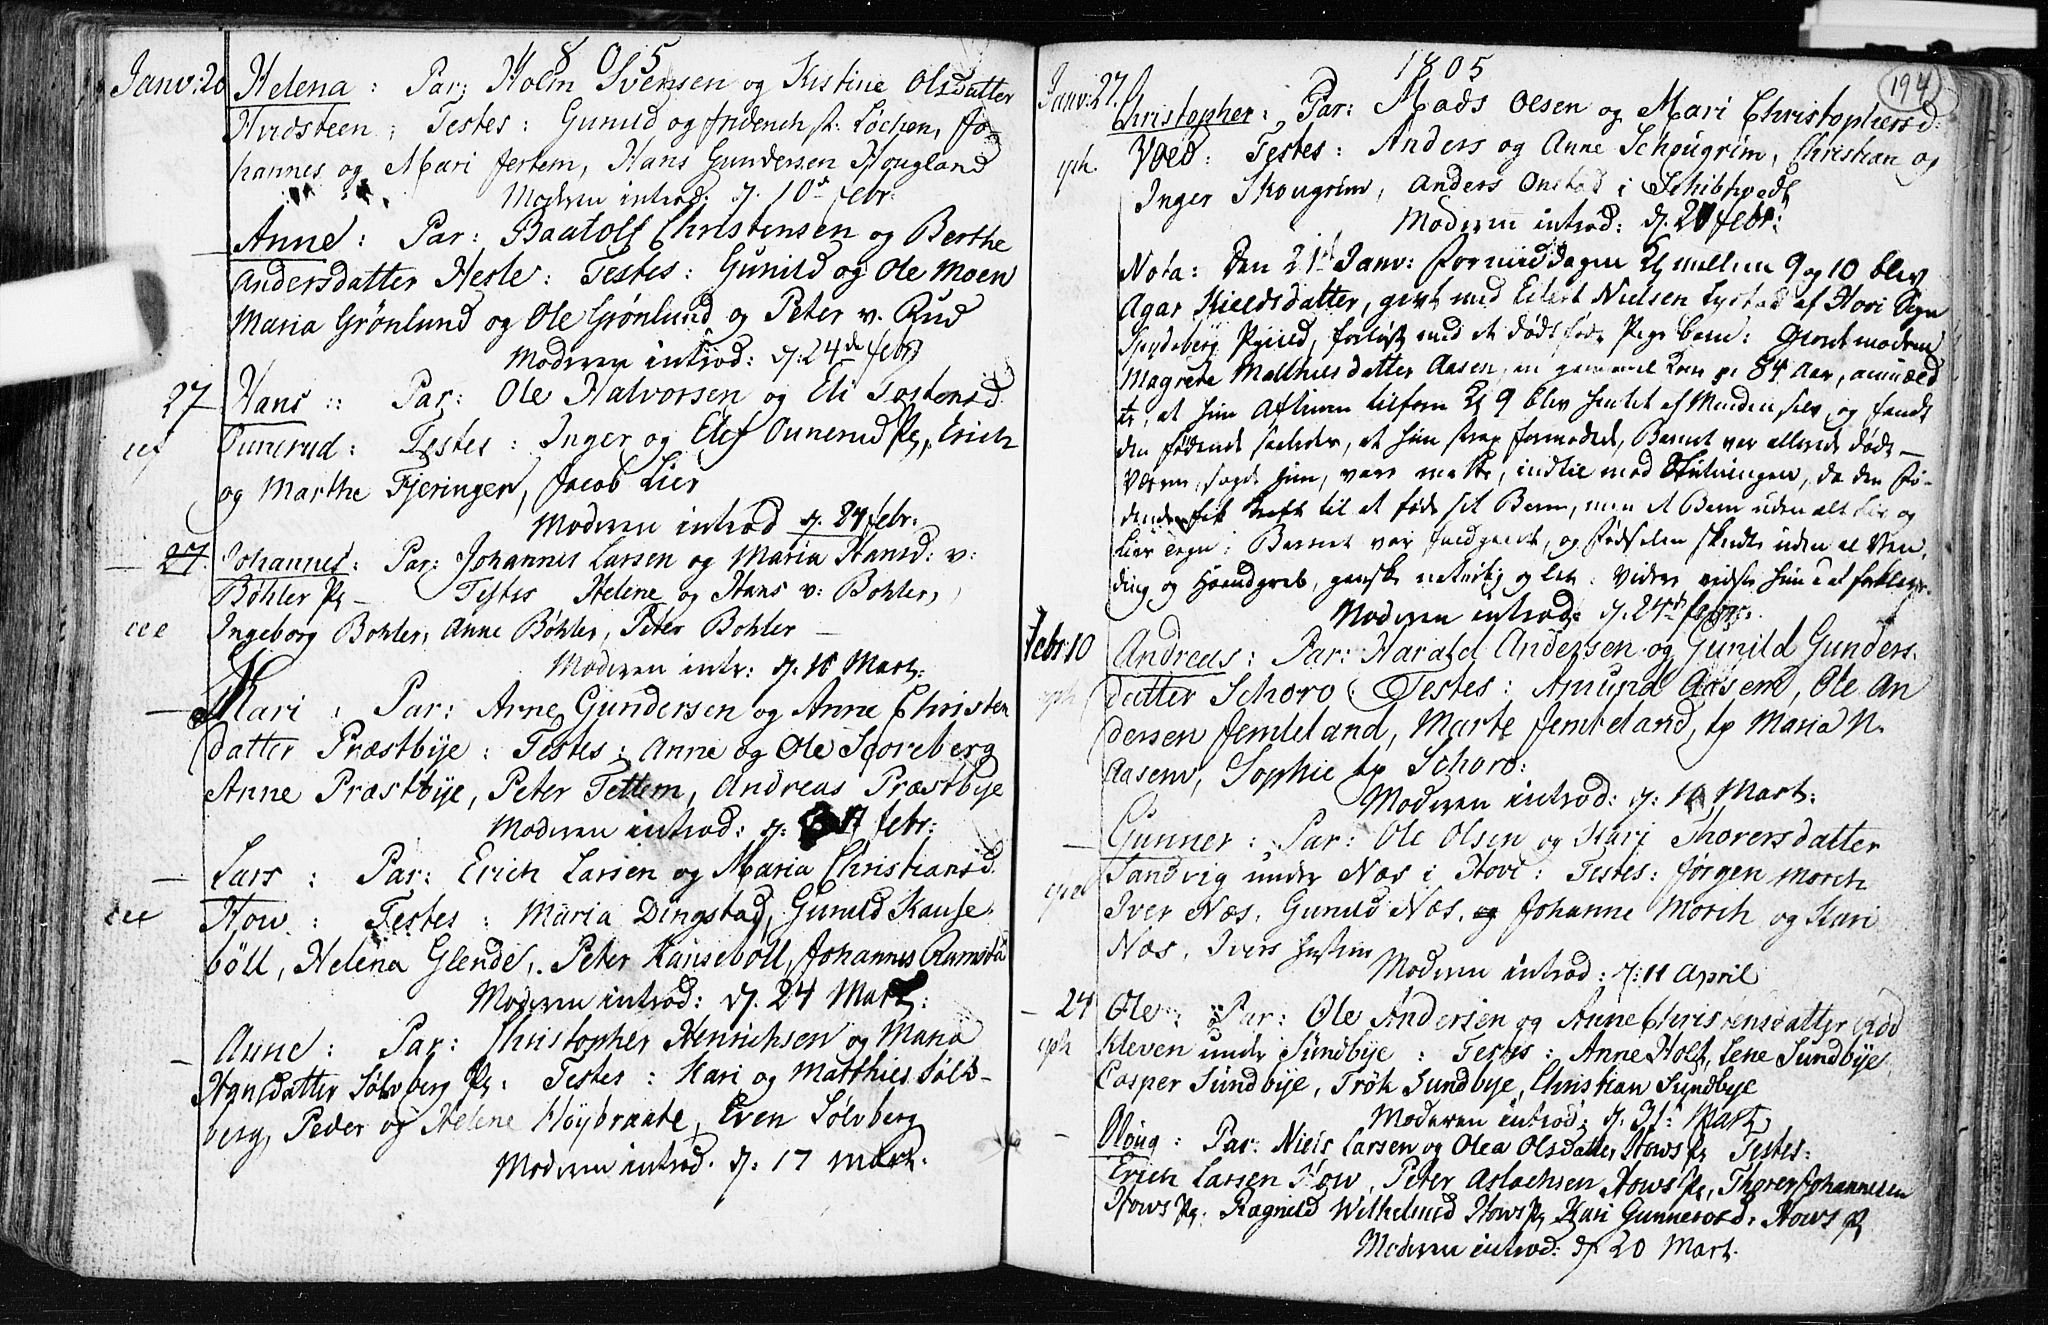 1805
Janv: 20 Helena: Par: Holm Svensen og Kistine Olsdatter
Hvidsteen; Testes: Gunild og friderich Løchen, Jo-
hannes og Mari Jertem, Hans Gundersen Hougland
Moderen introd: d: 10de febr:
Anne: Par: Christensen og Berthe
Andersdatter Hesle: Testes: Gunild og Ole Moen
Maria Grönlund og Ole Grönlund og Peter v. Rud
Moderen introd: d: 24de febr
27 Hans :: Par: Ole Halvorsen og Eli Tostensd:
Ounerud: Testes: Inger og Elef Ounerud Pg, Erich
og Marthe Fjeringen, Jacob Lier
Moderen introd d. 24 febr:
27. Johannes: Par: Johannes Larsen og Maria Hansd: v:
Bøhler Pg – Testes Helene og Hans v: Bohler,
Ingeborg Bohler, Anne Bøhler, Peter Bohler –
Moderen intr: d: 10 Mart:
Kari : Par: Arne Gundersen og Anne Christen
datter Præstbÿe: Testes: Anne og Ole Scoreberg
Anne Præstbÿe, Peter Tettem, Andreas Præstbÿe
Moderen introd: d: febr:
Lars : Par: Erich Larsen og Maria Christiansd.
How : Testes : Maria Dingstad, Gunild Kause
böll, Helena Glende, Peter Kauseböll, Johannes
Moderen introd: d. 24 Mart:
Anne: Par: Christopher Henrichsen og Maria
Hansdatter Sølvberg Pg: Testes: Kari og Matthies Sølv-
berg, Peder og Helene Höybraate, Even Sølvberg
Moderen introd. d: 17 Mart:
1805
194
Janv: 27. Christopher: Par: Mads Olsen og Mari Christophersd:
Testes: Anders og Anne Schougrim, Christian og
Inger Skougrim, Anders Onstad i
Moderen introd: d. febr:
Nota: Den 21de Janv: Formiddagen Kl mellem 9 og 10 blev
Agar Kieldsdatter, givt med Eilert Nielsen af Hovi Sogn
forløst med et dødfød Pige barn: Giordemoderen
Magrete Matthiesdatter Aasen, en gammel Kone paa 84 Aar, anmeld
te, at hun Aftenen tilforn Kl 9 blev hentet af Manden selv og fandt
den fødende saaledes, at hun strax formodede, Barnet var allerede dødt –
sagde hun, vare indtil mod da den Fø-
dende fik Kraft til at føde sit Barn, men et Barn uden alt Liv og
Livs Tegn: Barnet var fuldgaaet, og Fødselen skeedte uden al Ven
ding og Haandgreb, ganske naturlig og let. Videre vidste hun ei at forklare.
Moderen introd: d. 24de febr:
Febr: 10 Andreas: Par: Harald Andersen og Gunild Gunders
datter Schoro. Testes: Amund Aasen, Ole An
dersen Jemteland, Marte Jemteland, Maria N.
Aasen, Sophie Schoro:
Moderen introd: d: Mart:
Gunner: Par: Ole Olsen og Kari Thorersdatter
Sandvig under Næs i Hovi: Testes: Jørgen Morch
Iver Næs, Gunild Næs, og Johanne Morch og Kari
Næs, Ivers
Moderen introd: d: 11 April
24 Ole: Par: Ole Andersen og Anne Christensdatter
Kleven under Sundbÿe: Testes: Anne Holt, Lene Sundbÿe
Casper Sundbÿe, Trök Sundbye, Christian Sundbÿe
Moderen introd. d. 31: Mart
Oloug: Par: Niels Larsen og Olea Olsdatter Hows Pg Testes:
Erich Larsen How, Peter Aslachsen Hows Pg, Thorer Johannesen
Hows Pg: Ragnild Wilhelmsd Hows Pg Kari Gunnerosd. Hows Pg
Moderen introd: d 20 Mart.